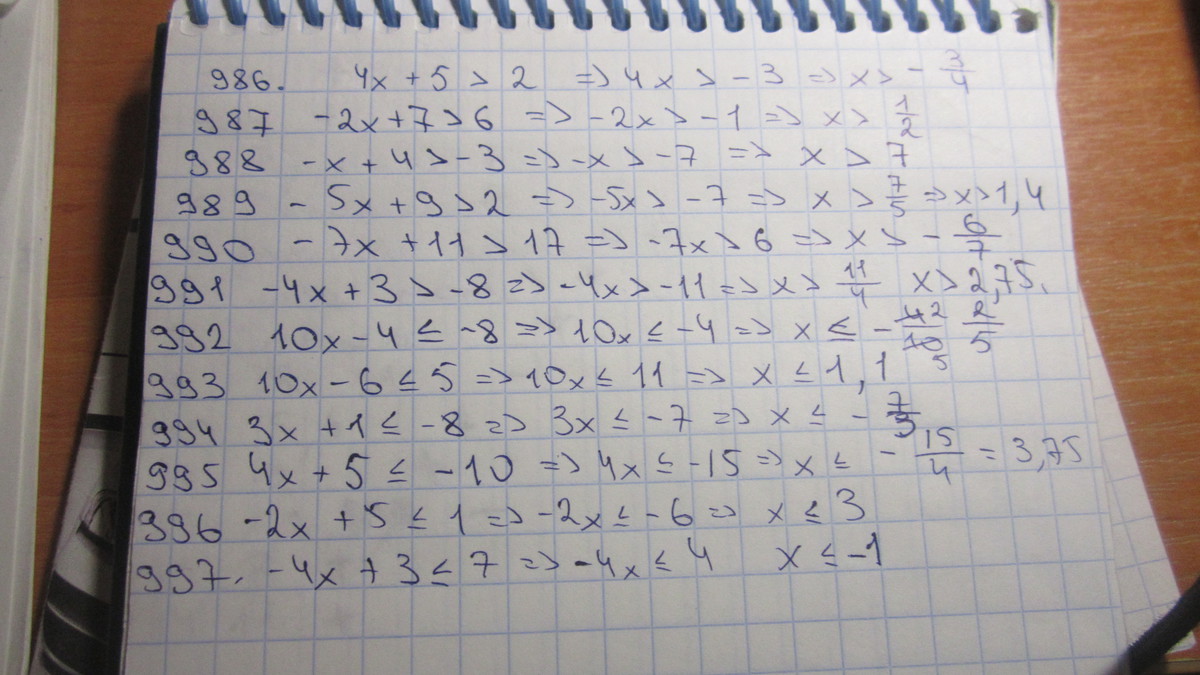 986. 4x + 5 > 2 => 4x > - 3 => x > - 3/4
987 -2x+7>6 => -2x > -1 => x > 1/2
988 -x + 4 > -3 => -x > -7 => x > 7
989 - 5x + 9 > 2 => -5x > -7 => x > 7/5 => x > 1,4
990 - 7x + 11 > 17 => -7x > 6 => x > - 6/7
991 -4x + 3 > -8 => -4x > -11 => x > 11/4 x > 2,75.
992 10x - 4 ≤ -8 => 10x ≤ -4 => x ≤ - 4 2/10 5 2/5
993 10x - 6 ≤ 5 => 10x ≤ 11 => x ≤ 1,1
994 3x + 1 ≤ -8 => 3x ≤ -7 => x ≤ - 7/3
995 4x + 5 ≤ -10 => 4x ≤ -15 => x ≤ - 15/4 = 3,75
996 -2x + 5 ≤ 1 => -2x ≤ -6 => x ≤ 3
997. -4x + 3 ≤ 7 => -4x ≤ 4 x ≤ -1